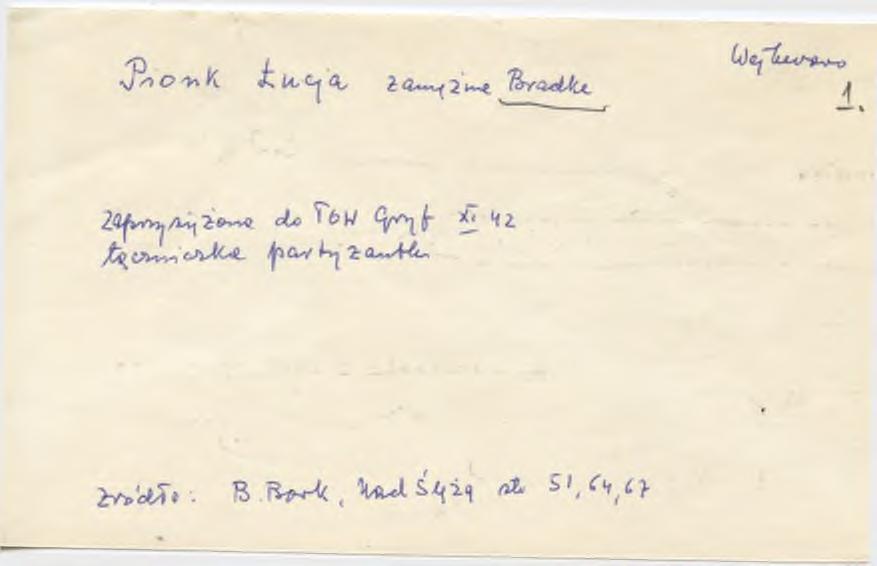 Wejherowo
1.
Pionk Łucja zamężna Bradke
zaprzysiężona do TOW Gryf XI 42
łączniczka partyzantki
źródło: B. Bork, Nad Ślężą str 51, 64, 67